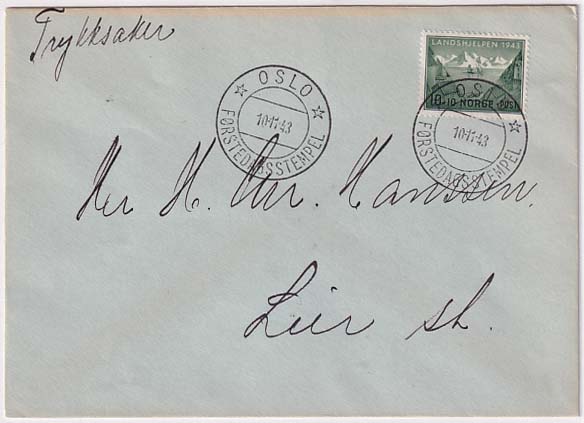 Trykksaker
LANDSHJELPEN 1943
10+10 NORGE POST
OSLO
10·11·43
FØRSTEDAGSSTEMPEL
OSLO
10·11·43
FØRSTEDAGSSTEMPEL
Her H. Chr. Hanssen,
Lier st.